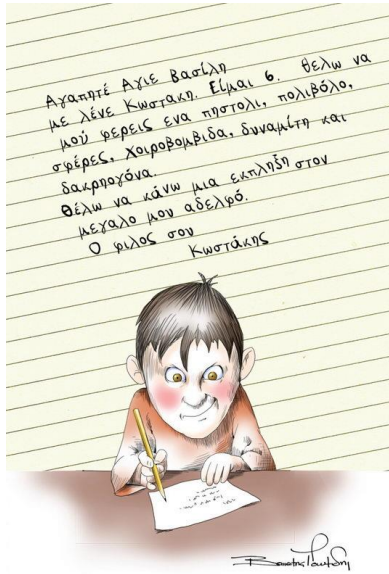 Αγαπητέ Αγιε Βασίλη
με λένε Κωστακη. Είμαι 6. θελω να
μού φερεις ενα πηστολι, πολιβόλο,
σφέρες, χοιροβομβιδα, δυναμίτη και
δακρηογόνα.
Θέλω να κάνω μια εκπληξη στον
μεγαλο μου αδελφό.
Ο φιλος σου
Κωστάκης